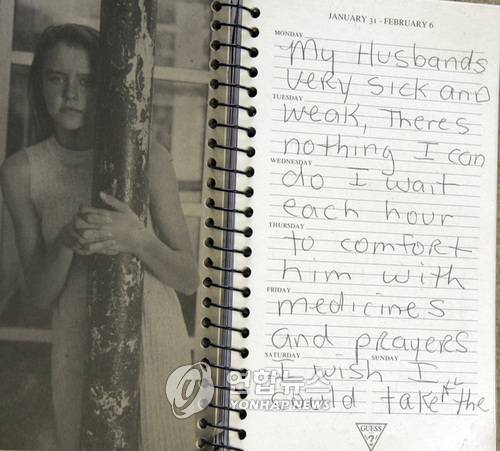 JANUARY 31 - FEBRUARY 6
MONDAY
My Husbands
very sick and
TUESDAY
weak, Theres
nothing I can
WEDNESDAY
do I wait
each hour
THURSDAY
to comfort
him with
FRIDAY
medicines
and prayers
SATURDAY SUNDAY
I wish I
could take the
연합뉴스
YONHAPNEWS
GUESS
?